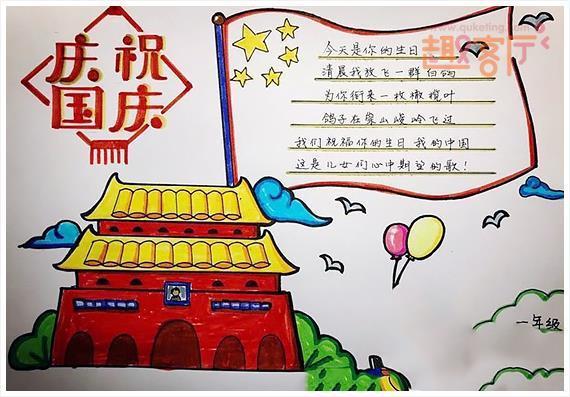 www.quketing.com
趣客厅
庆祝
国庆
今天是你的生日
清晨我放飞一群白鸽
为你衔来一枚橄榄叶
鸽子在崇山峻岭飞过
我们祝福你的生日 我的中国
这是儿女们心中期望的歌！
一年级